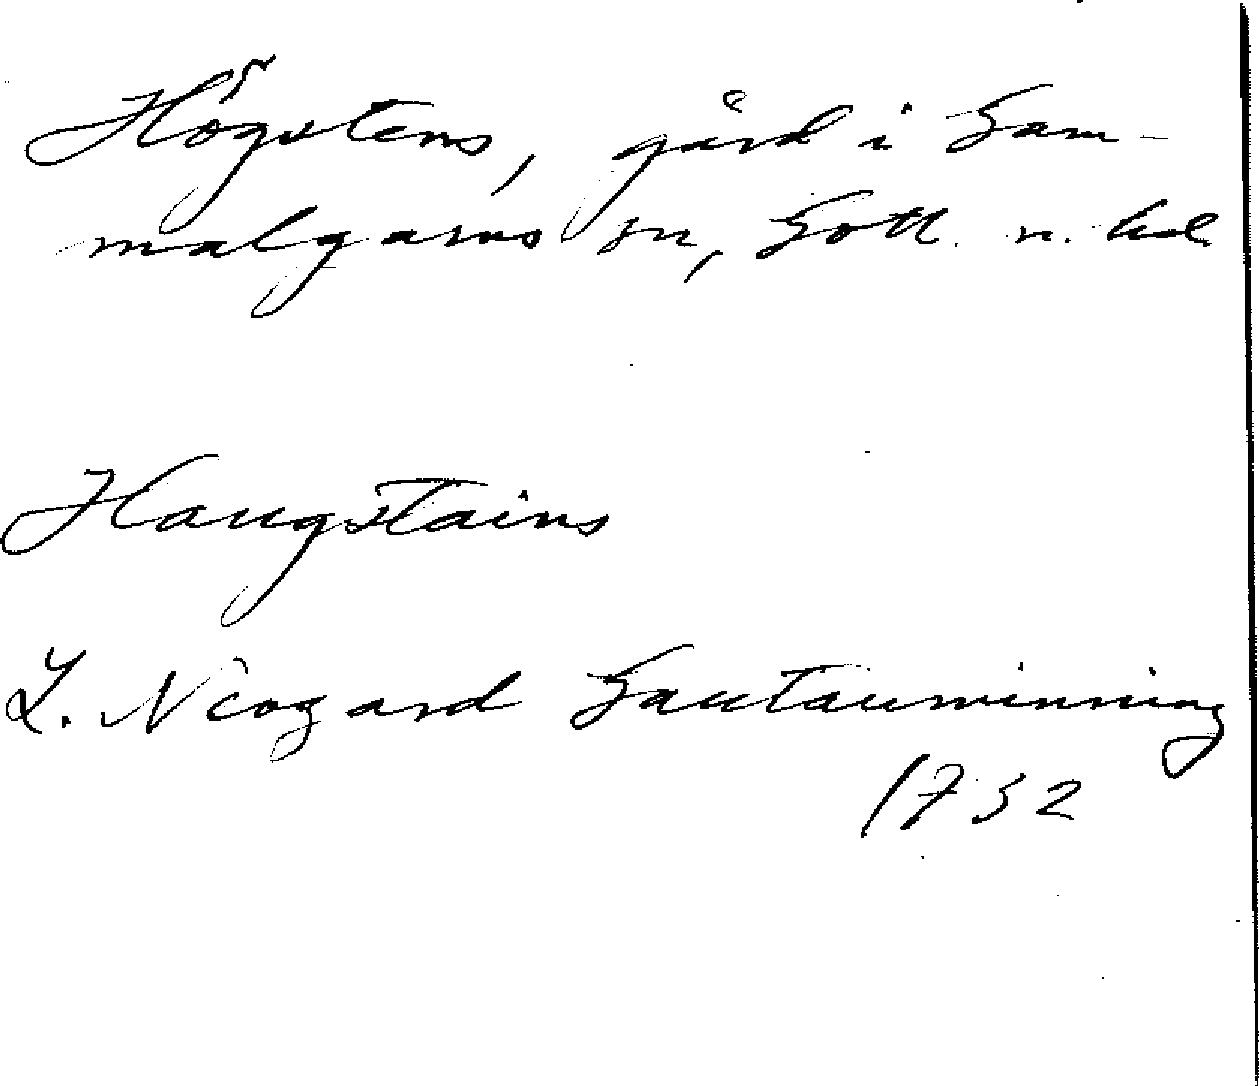 Högstens, gård i Gam-
malgarns sn, Gotl. n. hd
Haugstains
L. Neogard Gautauminning
1732